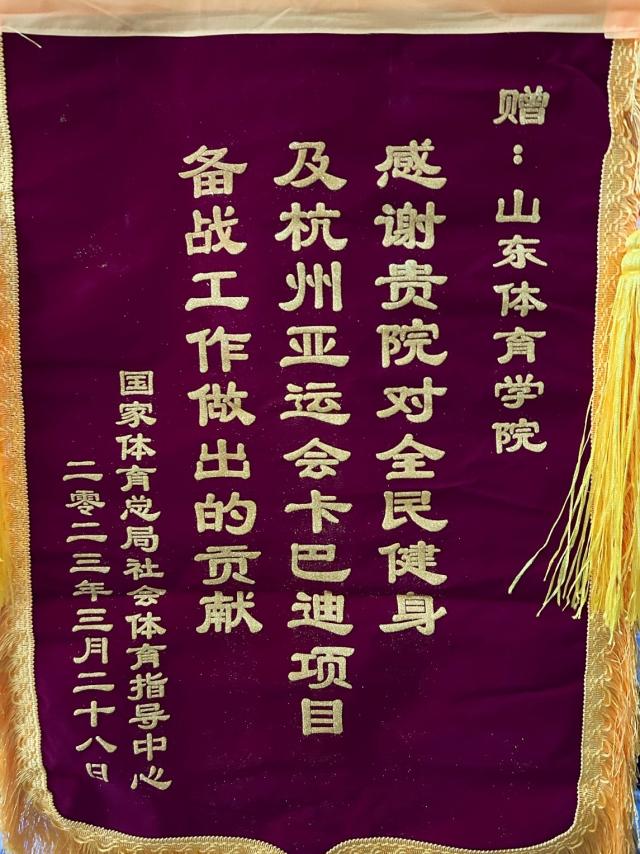 赠：山东体育学院
感谢贵院对全民健身
及杭州亚运会卡巴迪项目
备战工作做出的贡献
国家体育总局社会体育指导中心
二零二三年三月二十八日